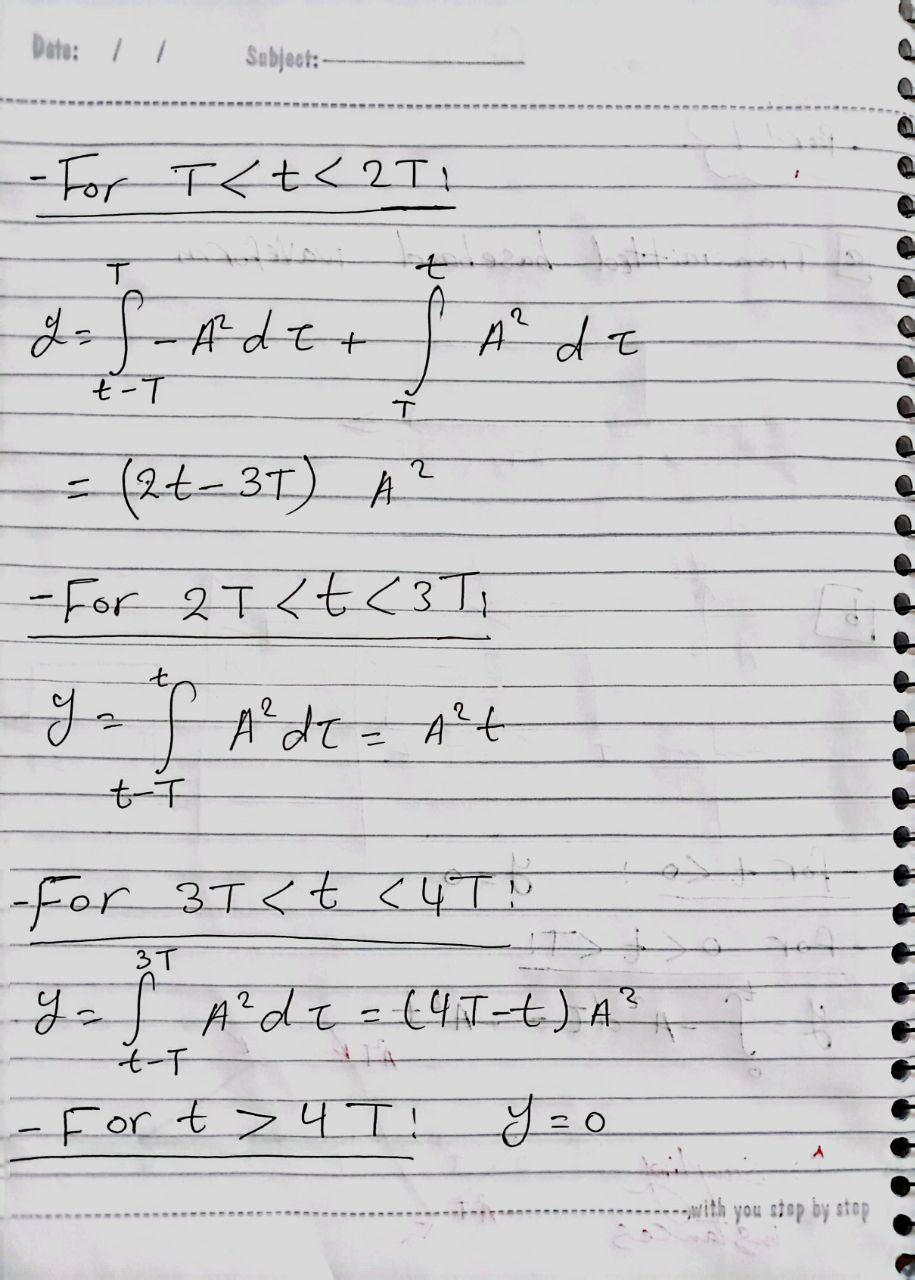 Date: / / Subject:
- For T < t < 2T:
y = ∫_{t-T}^{T} - A² dτ + ∫_{T}^{t} A² dτ
= (2t - 3T) A²
- For 2T < t < 3T:
y = ∫_{t-T}^{t} A² dτ = A² t
- For 3T < t < 4T:
y = ∫_{t-T}^{3T} A² dτ = (4T - t) A²
- For t > 4T: y = 0
with you step by step